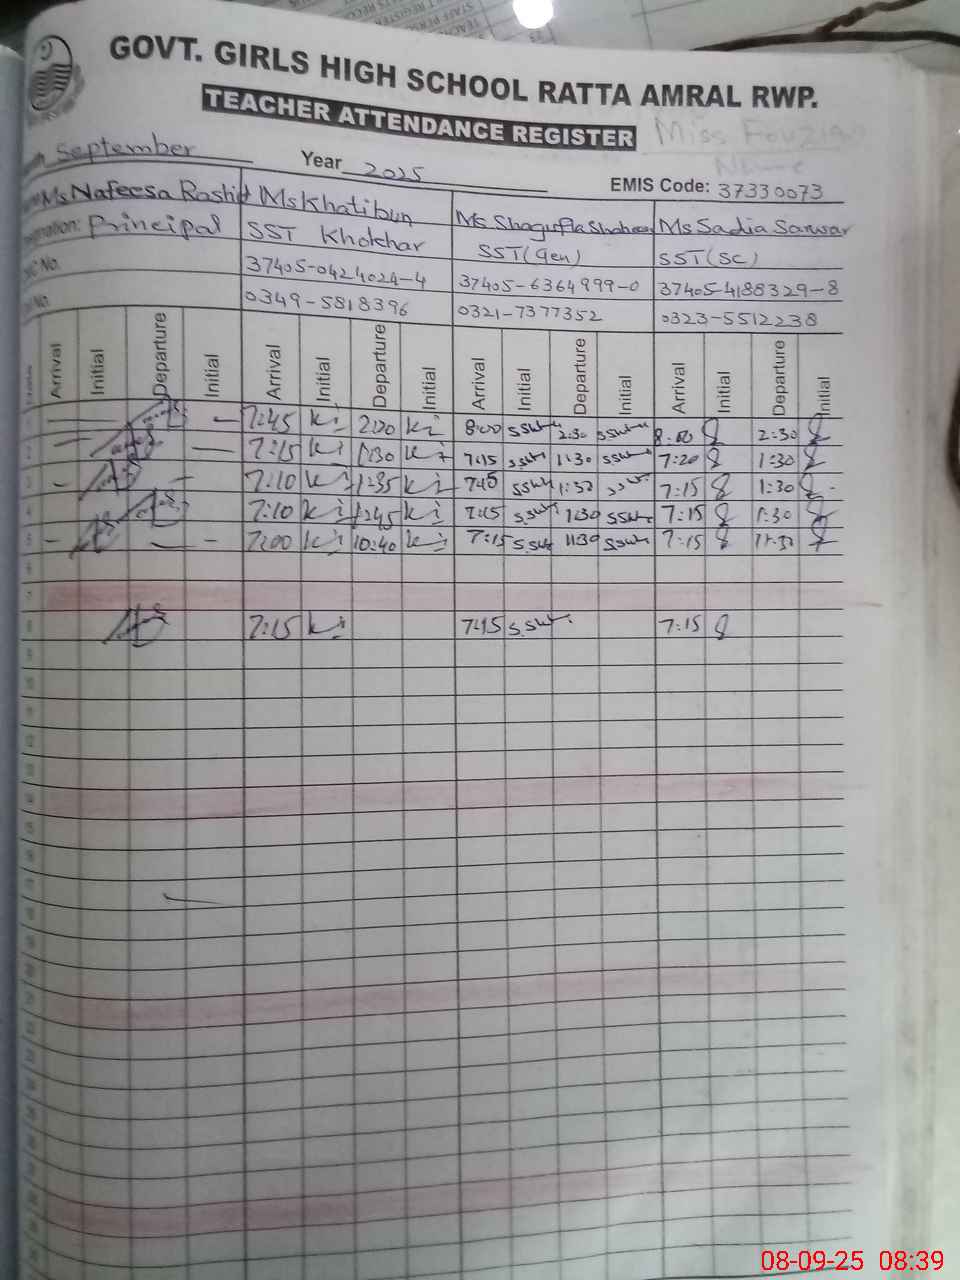 GOVT. GIRLS HIGH SCHOOL RATTA AMRAL RWP.
TEACHER ATTENDANCE REGISTER
Miss Fouzia
Name
September Year 2025 EMIS Code: 37330073
Ms Nafeesa Rashid Ms Khatibun Ms Shagufta Shaheen Ms Sadia Sarwar
Principal SST Khokhar SST(Gen) SST(SC)
37405-0424024-4 37405-6364999-0 37405-4188329-8
0349-5818396 0321-7377352 0323-5512238
Arrival Initial Departure Initial Arrival Initial Departure Initial Arrival Initial Departure Initial Arrival Initial Departure Initial
1 7:45 Ki 2:00 Ki 8:00 2:30 8:00 2:30
2 7:15 Ki 1:30 Ki 7:15 1:30 7:20 1:30
3 7:10 Ki 1:35 Ki 7:15 1:30 7:15 1:30
4 7:10 Ki 1:45 Ki 7:15 1:30 7:15 1:30
5 7:00 Ki 10:40 Ki 7:15 11:30 7:15 11:30
6
7
8 7:15 Ki 7:15 7:15
9
10
11
12
13
14
15
16
17
18
19
20
21
22
23
24
25
26
27
28
29
30
08-09-25 08:39